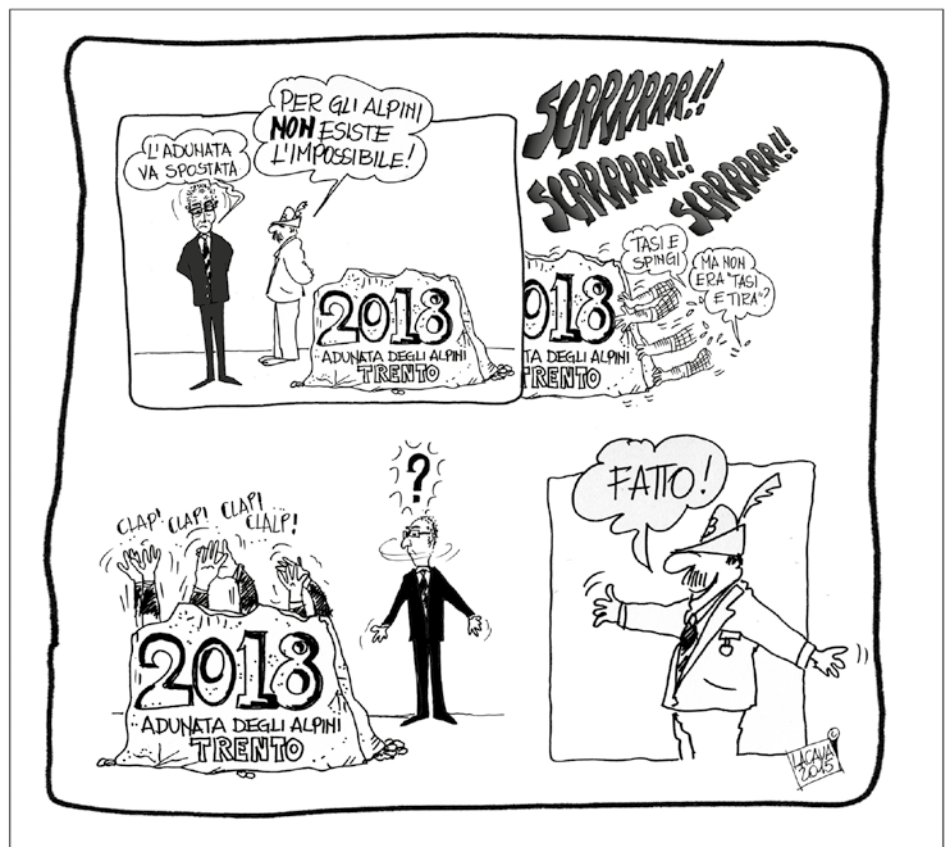 L'ADUNATA
VA SPOSTATA
PER GLI ALPINI
NON ESISTE
L'IMPOSSIBILE!
2018
ADUNATA DEGLI ALPINI
TRENTO
SCRRRRRR!!
SCRRRRRR!!
SCRRRRRR!!
TASI E
SPINGI
MA NON
ERA "TASI
E TIRA"?
018
TA DEGLI ALPINI
TRENTO
CLAP!
CLAP!
CLAP!
CLALP!
?
2018
ADUNATA DEGLI ALPINI
TRENTO
FATTO!
©
LACAVA
2015